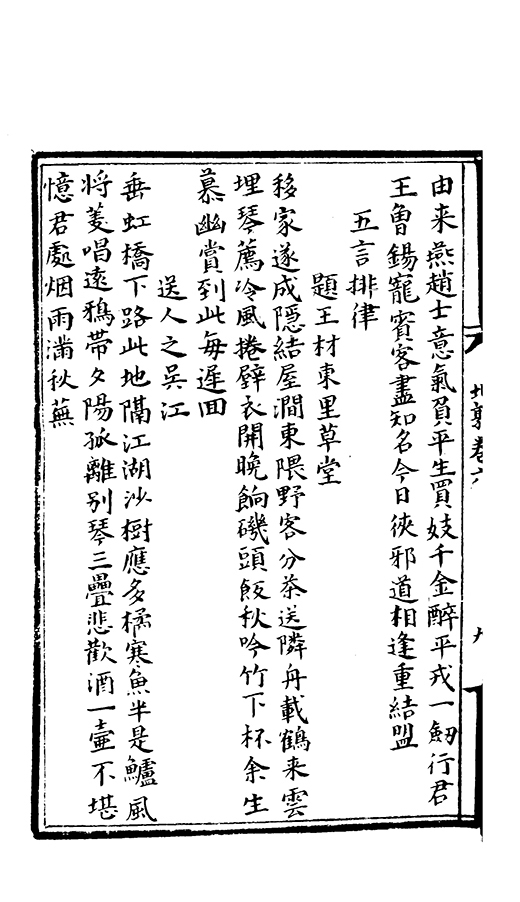 由来燕趙士意氣負平生買妓千金醉平戎一劒行君
王曾錫寵賓客盡知名今日俠邪道相逢重結盟
五言排律
題王材東里草堂
移家遂成隠結屋澗東隈野客分茶送隣舟載鶴来雲
埋琴薦冷風捲壁衣開晩餉磯頭飯秋吟竹下杯余生
慕幽賞到此每遲回
送人之吳江
垂虹橋下路此地隔江湖沙樹應多橘寒魚半是鱸風
将菱唱遠鴉帶夕陽孤離别琴三疊悲歡酒一壷不堪
憶君處烟雨滿秋蕪
卷六
九